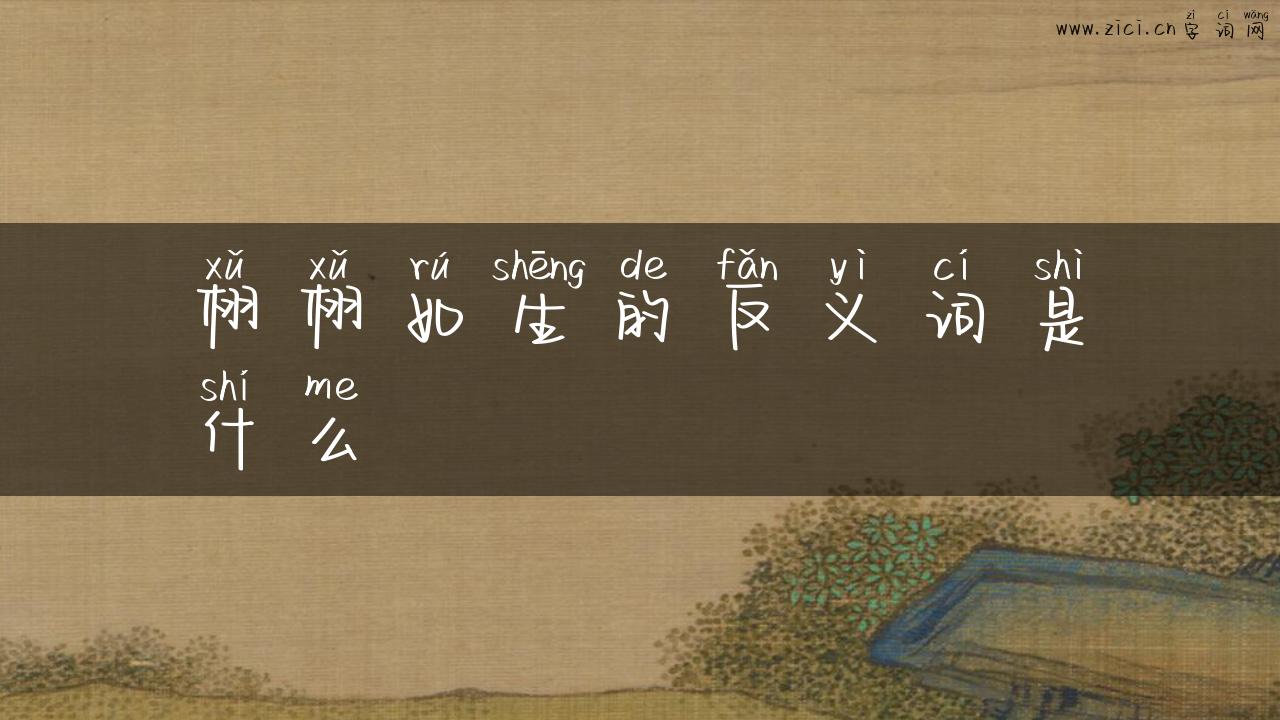 zì cí wǎng
www.zici.cn 字 词 网
xǔ xǔ rú shēng de fǎn yì cí shì
栩 栩 如 生 的 反 义 词 是
shí me
什 么